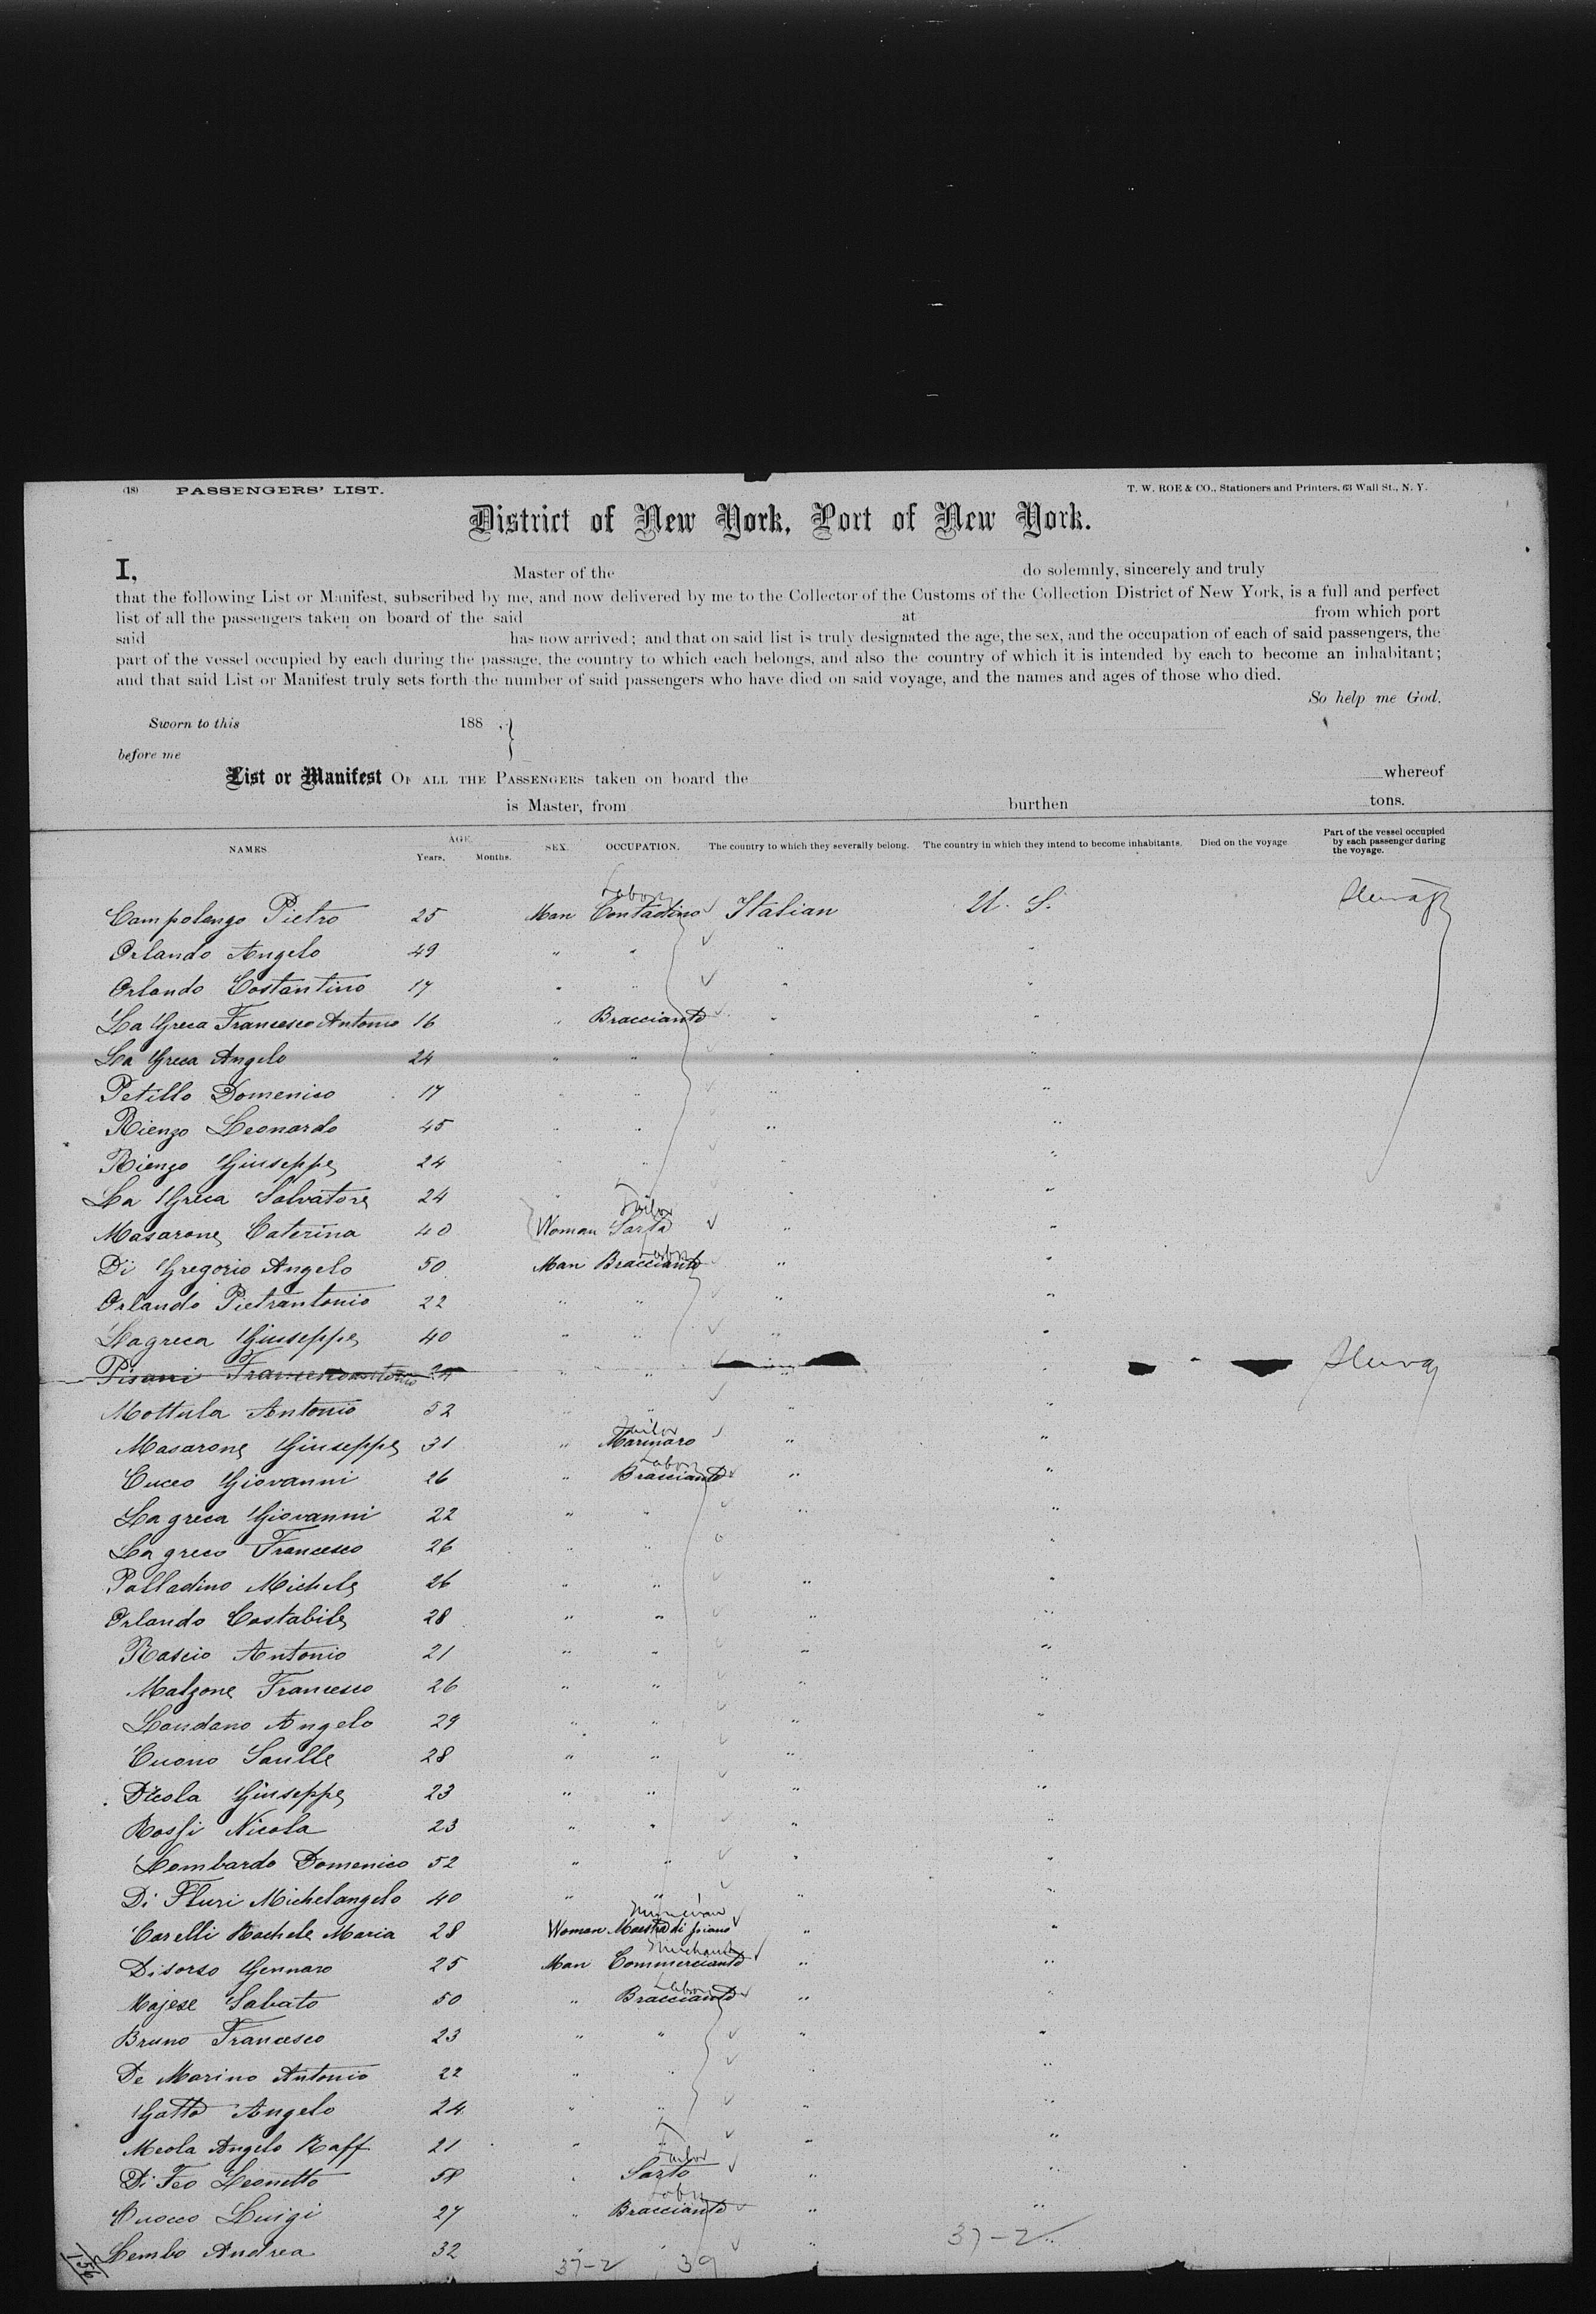 (18) PASSENGERS' LIST. T. W. ROE & CO., Stationers and Printers, 63 Wall St., N. Y.
District of New York, Port of New York.
I, Master of the do solemnly, sincerely and truly
that the following List or Manifest, subscribed by me, and now delivered by me to the Collector of the Customs of the Collection District of New York, is a full and perfect
list of all the passengers taken on board of the said at from which port
said has now arrived; and that on said list is truly designated the age, the sex, and the occupation of each of said passengers, the
part of the vessel occupied by each during the passage, the country to which each belongs, and also the country of which it is intended by each to become an inhabitant;
and that said List or Manifest truly sets forth the number of said passengers who have died on said voyage, and the names and ages of those who died.
So help me God.
Sworn to this 188 .
before me
List or Manifest OF ALL THE PASSENGERS taken on board the whereof
is Master, from burthen tons.
NAMES AGE. Years. Months. SEX. OCCUPATION. The country to which they severally belong. The country in which they intend to become inhabitants. Died on the voyage Part of the vessel occupied by each passenger during the voyage.
Labor
Campolongo Pietro 25 Man Contadino Italian U. S.
Orlando Angelo 49 " " " "
Orlando Costantino 17 " " " "
La Greca Francesco Antonio 16 " Bracciante " "
La Greca Angelo 24 " " " "
Petillo Domenico 17 " " " "
Rienzo Leonardo 45 " " " "
Rienzo Giuseppe 24 " " " "
La Greca Salvatore 24 " " "
Tailor
Masarone Caterina 40 Woman Sarta " "
Labor
Di Gregorio Angelo 50 Man Bracciante " "
Orlando Pietrantonio 22 " " " "
Lagreca Giuseppe 40 " " " "
Pisani Francescantonio " " " "
Mottula Antonio 52 " " " "
Sailor
Masarone Giuseppe 31 " Marinaro " "
Labor
Cucco Giovanni 26 " Bracciante " "
Lagreca Giovanni 22 " " " "
Lagreco Francesco 26 " " "
Palladino Michele 26 " " " "
Orlando Costabile 28 " " " "
Rascio Antonio 21 " " " "
Malzone Francesco 26 " " " "
Landano Angelo 29 " " " "
Cuono Saulle 28 " " " "
Dicola Giuseppe 23 " " " "
Rossi Nicola 23 " " " "
Lombardo Domenico 52 " " " "
Di Fluri Michelangelo 40 " " " "
Musician
Carelli Rachele Maria 28 Woman Maestra di piano " "
Merchant
Disorso Gennaro 25 Man Commerciante " "
Labor
Majese Sabato 50 " Bracciante " "
Bruno Francesco 23 " " " "
De Marino Antonio 22 " " " "
Gatto Angelo 24 " " " "
Meola Angelo Raff 21 " " " "
Tailor
Di Feo Leonetto 58 " Sarto " "
Labor
Cuocco Luigi 27 " Bracciante " "
Lembo Andrea 32 " " " "
37-2 39 37-2
156